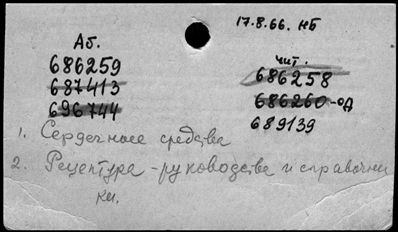 17.8.66. НБ
Аб.
686259
687413
696744
чит.
686258
686260-од
689139
1. Сердечные средства
2. Рецептура - руководства и справочни
ки.